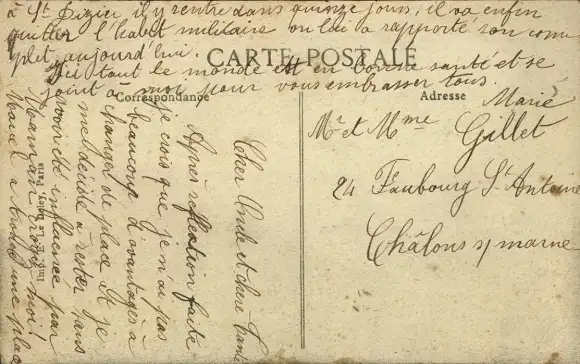 CARTE POSTALE
Correspondance
Adresse
Cher Oncle et chère Tante
Après réflection faite
je crois que je n'ai pas
beaucoup d'avantages à
changer de place et je
me décide à rester sans
avoir été influencée par
Maman ni moi!
Marie a trouvé une place
à St Dizier, il y rentre dans quinze jours, il va enfin
quitter l'habit militaire on lui a rapporté son com
plet aujourd'hui.
Ici tout le monde est en bonne santé et se
joint à moi pour vous embrasser tous.
Marie
Mr et Mme
Gillet
24 Faubourg St Antoine
Châlons s/ marne